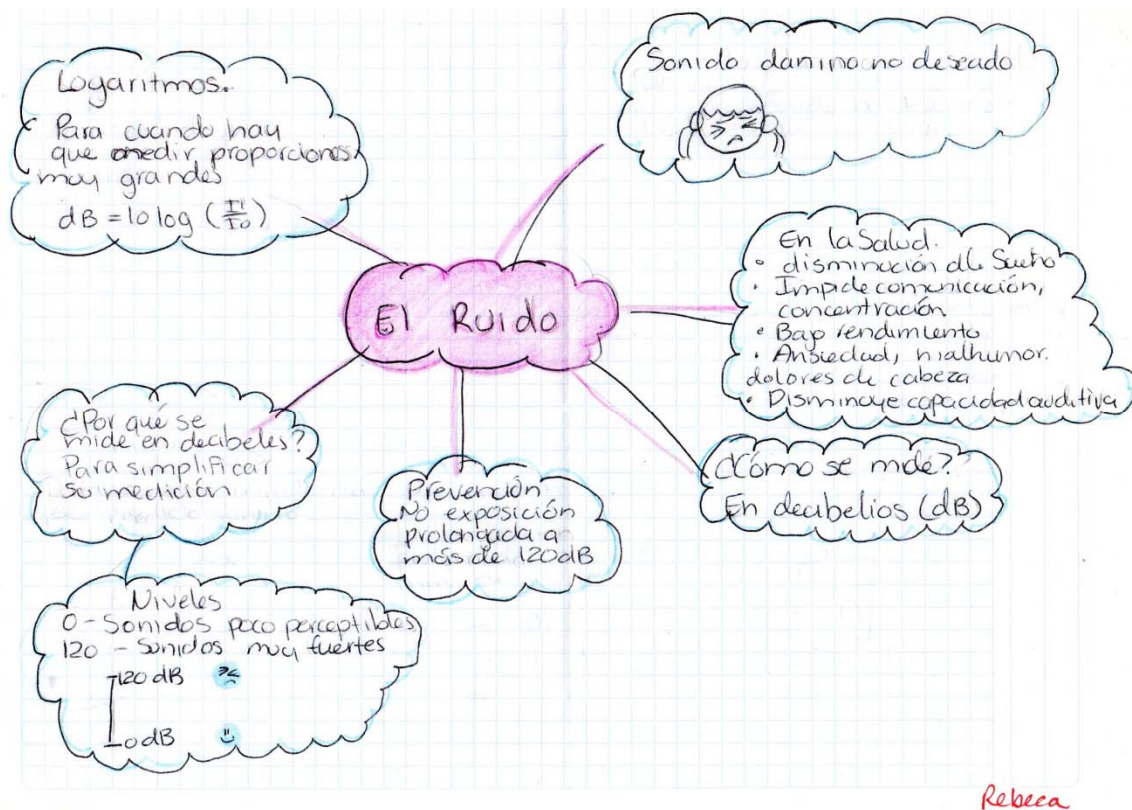 Logaritmos.
Para cuando hay
que medir proporciones
muy grandes
dB = 10 log (I1/I0)
Sonido dañino no deseado
El Ruido
En la Salud.
• disminución de Sueño
• Impide comunicación,
concentración
• Bajo rendimiento
• Ansiedad, malhumor.
dolores de cabeza
• Disminuye capacidad auditiva
¿Por qué se
mide en decibeles?
Para simplificar
su medición
Prevención
No exposición
prolongada a
más de 120dB
¿Cómo se mide?
En decibelios (dB)
Niveles
0 - Sonidos poco perceptibles
120 - Sonidos muy fuertes
120 dB
0 dB
Rebeca